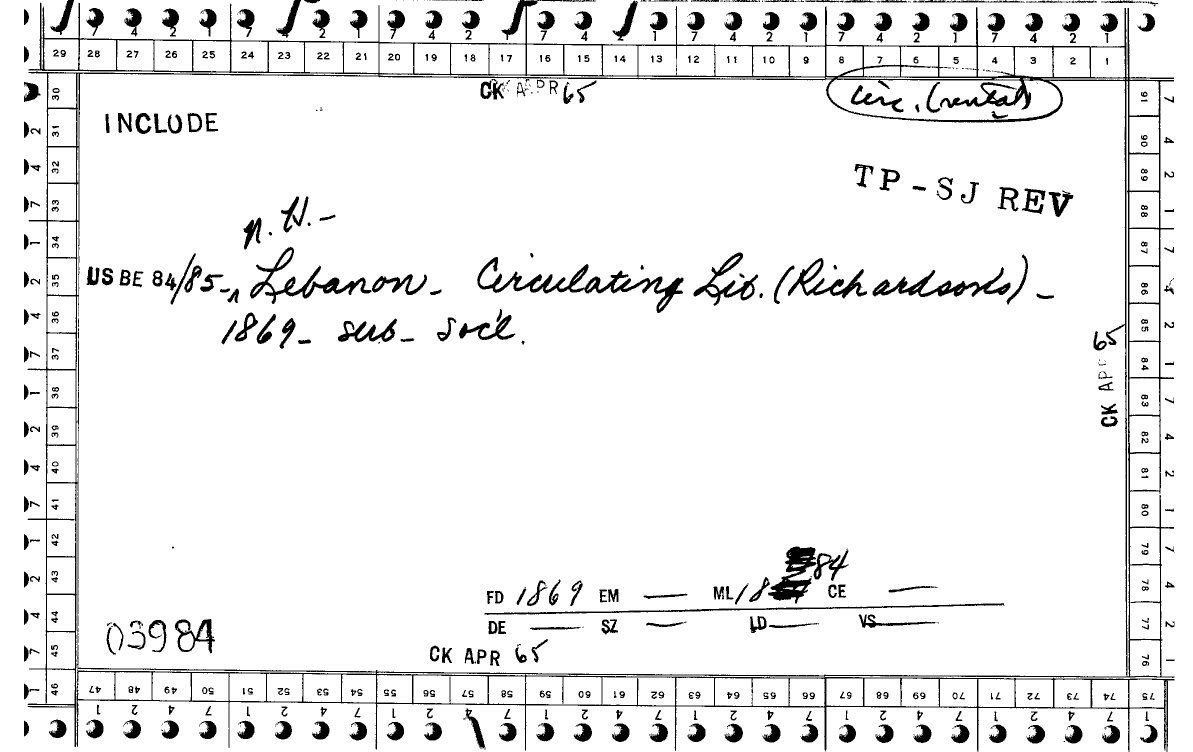 7 4 2 1 7 4 2 1 7 4 2 1 7 4 2 1 7 4 2 1 7 4 2 1 7 4 2 1
29 28 27 26 25 24 23 22 21 20 19 18 17 16 15 14 13 12 11 10 9 8 7 6 5 4 3 2 1
CK APR 65
circ. (rental)
INCLUDE
TP-SJ REV
n. H. -
US BE 84/85 - ^ Lebanon - Circulating Lib. (Richardson's) -
1869 - sub - soc'l.
CK APR 65
84
FD 1869 EM — ML 18 CE —
DE — SZ — LD — VS —
03984
CK APR 65
30 31 32 33 34 35 36 37 38 39 40 41 42 43 44 45 46
47 48 49 50 51 52 53 54 55 56 57 58 59 60 61 62 63 64 65 66 67 68 69 70 71 72 73 74 75
1 2 4 7 1 2 4 7 1 2 4 7 1 2 4 7 1 2 4 7 1 2 4 7 1 2 4 7 1
76 77 78 79 80 81 82 83 84 85 86 87 88 89 90 91